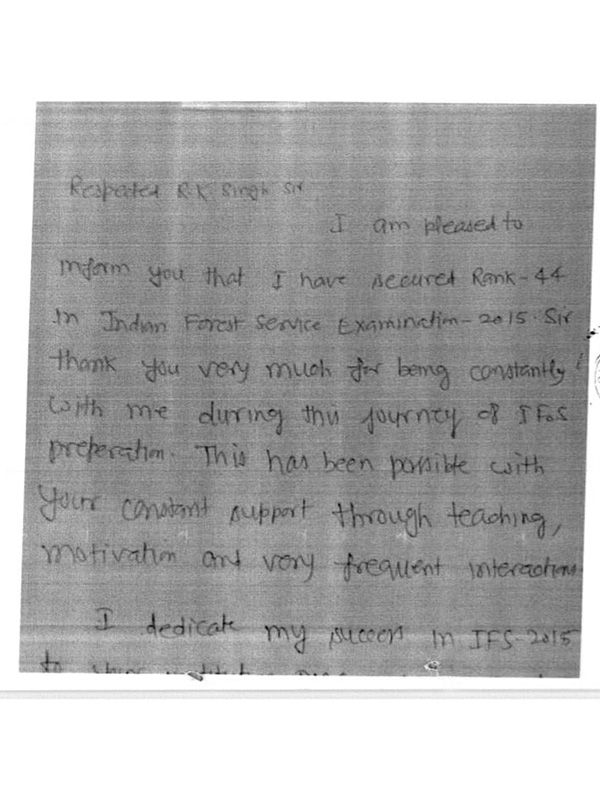 Respected R.K. Singh Sir
I am pleased to
inform you that I have secured Rank-44
in Indian Forest Service Examination-2015. Sir
thank you very much for being constantly
with me during this journey of IFoS
preperation. This has been possible with
your constant support through teaching,
motivation and very frequent interactions.
I dedicate my success in IFS-2015
to